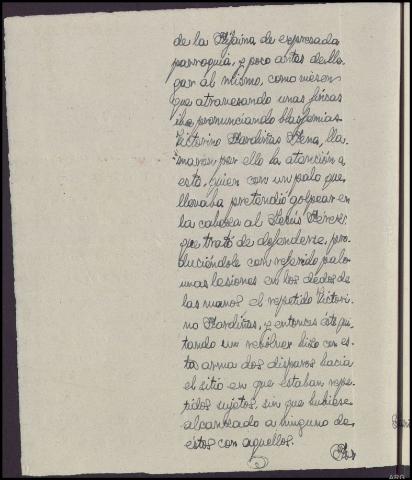 de la Ajaina de expresada
parroquia, y poco antes de lle-
gar al mismo, como viesen
que atravesando unas fincas
iba pronunciando blasfemias
Victorino Mena, lla-
maron por ello la atención a
esto, quien con un palo que
llevaba pretendió golpear en
la cabeza al Jesús
que trató de defenderse, pro-
duciéndole con referido palo
unas lesiones en los dedos de
las manos el repetido Victori-
no y entonces éste qui-
tando un revólver hizo con es-
ta arma dos disparos hacia
el sitio en que estaban repe-
tidos sujetos, sin que hubiese
alcanzado a ninguno de
éstos con aquellos.